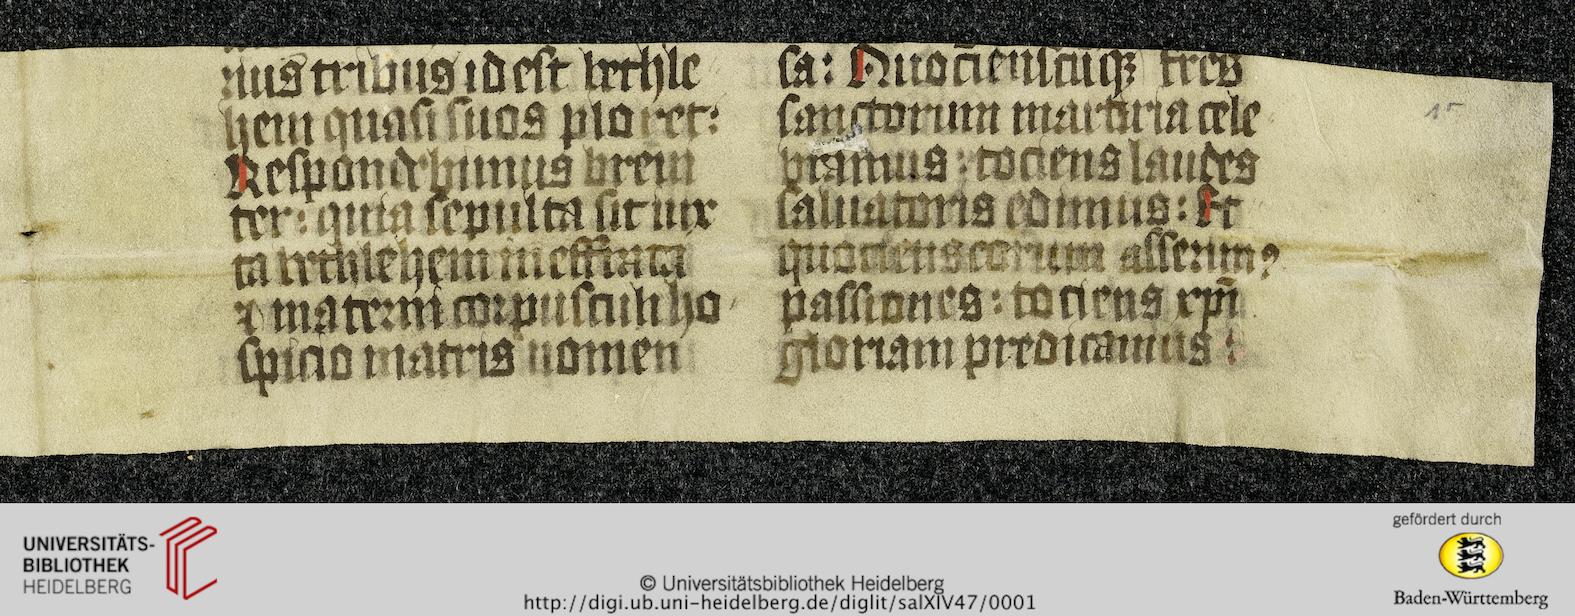 nus tribus id est bethle
hem quasi suos ploret:
Respondebimus brevi
ter: quia sepulta sit iux
ta bethlehem in effrata
⁊ materni corpusculi ho
spicio matris nomen
sa: Quociēscūq; fres
sanctorum martiria cele
bramus: tociens laudes
saluatoris edimus: Et
quociens eorum asserimꝰ
passiones: tociens xp̄i
gloriam predicamus:
15
UNIVERSITÄTS-
BIBLIOTHEK
HEIDELBERG
© Universitätsbibliothek Heidelberg
http://digi.ub.uni-heidelberg.de/diglit/salXIV47/0001
gefördert durch
Baden-Württemberg